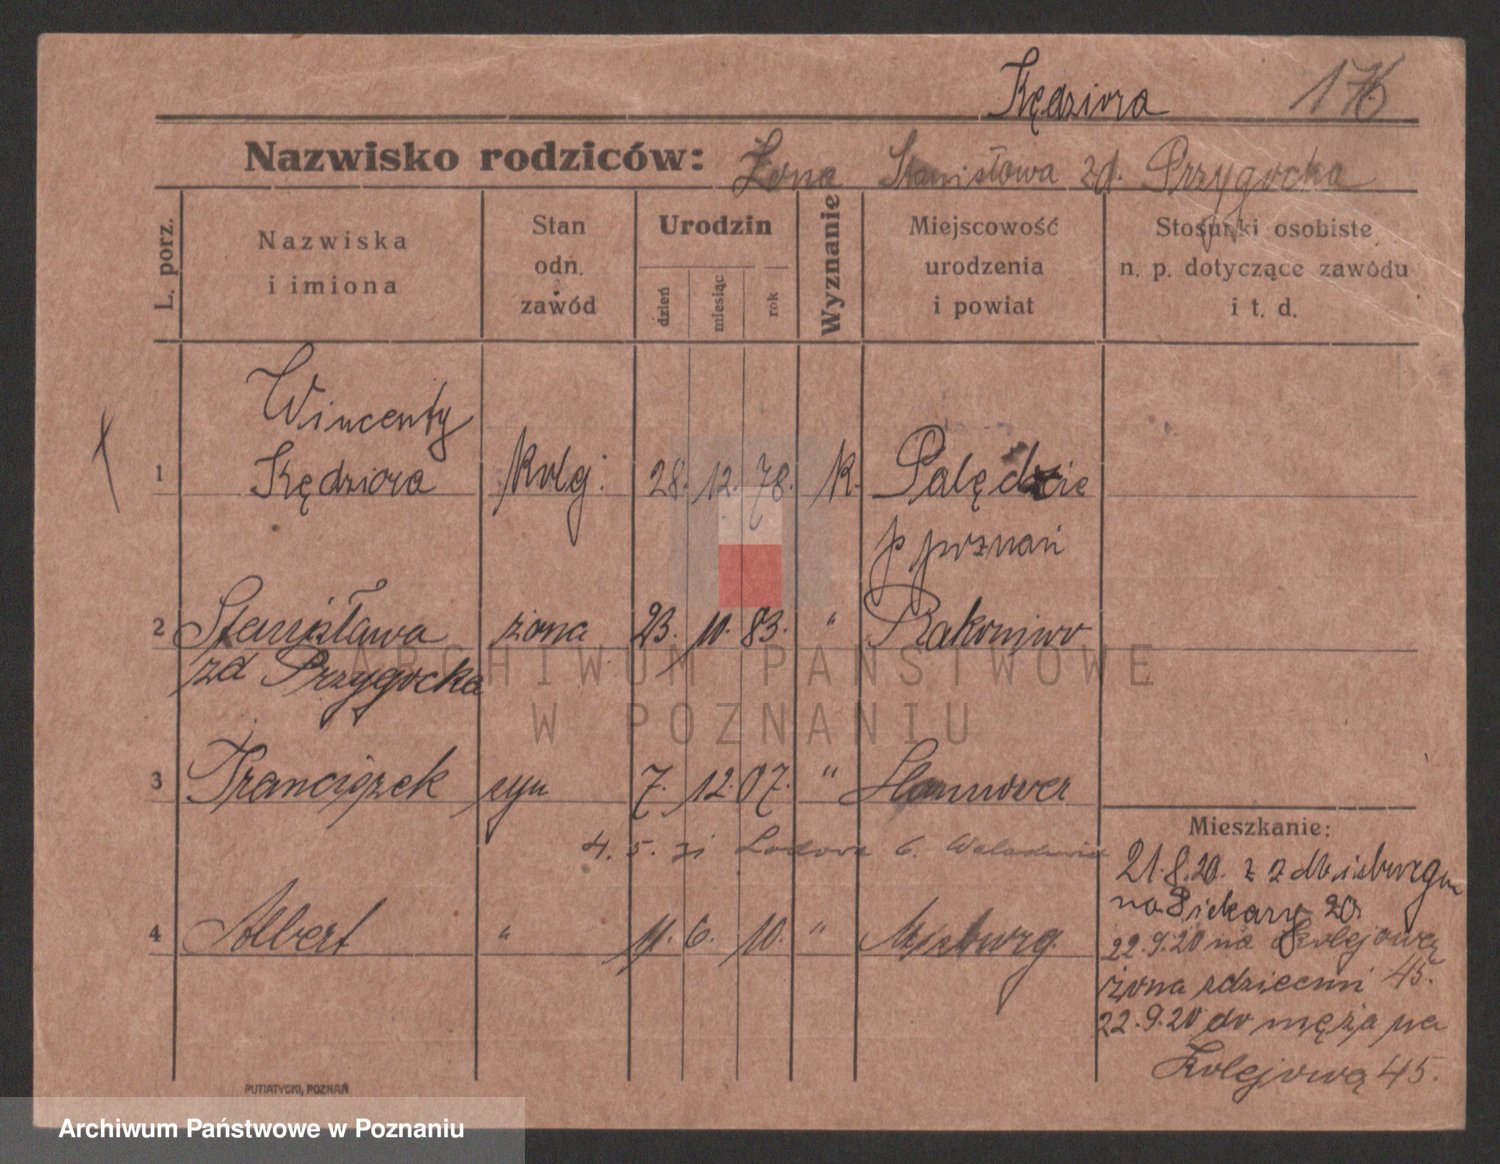 Kędziora 176
Nazwisko rodziców: Żona Stanisłowa zd. Przygocka
L. porz.
Nazwiska
i imiona
Stan
odn.
zawód
Urodzin
dzień
miesiąc
rok
Wyznanie
Miejscowość
urodzenia
i powiat
Stosunki osobiste
n. p. dotyczące zawodu
i t. d.
Wincenty
1 Kędziora kolej: 28. 12. 78. k. Palędzie
p poznań
2 Stanisława żona 23. 10. 83. " Rakoniwo
zd Przygocka
ARCHIWUM PAŃSTWOWE
W POZNANIU
3 Franciszek syn 7. 12. 07. " Hannover
4. 5. 6.
4 Albert " 11. 6. 10. "
Mieszkanie:
21.8.20. z
na Piekary 20
22.9.20 na Kolejową
żona zdziećmi 45.
22.9.20 do męża na
Kolejową 45.
PUTIATYCKI, POZNAŃ
Archiwum Państwowe w Poznaniu